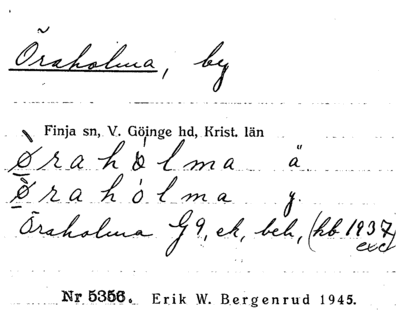 Öraholma, by
Finja sn, V. Göinge hd, Krist. län
Ø̀raho̍lma ä
Ø̀raho̍lma y.
Öraholma G9, ek, beb, (kb 1937
excf
Nr 5356. Erik W. Bergenrud 1945.